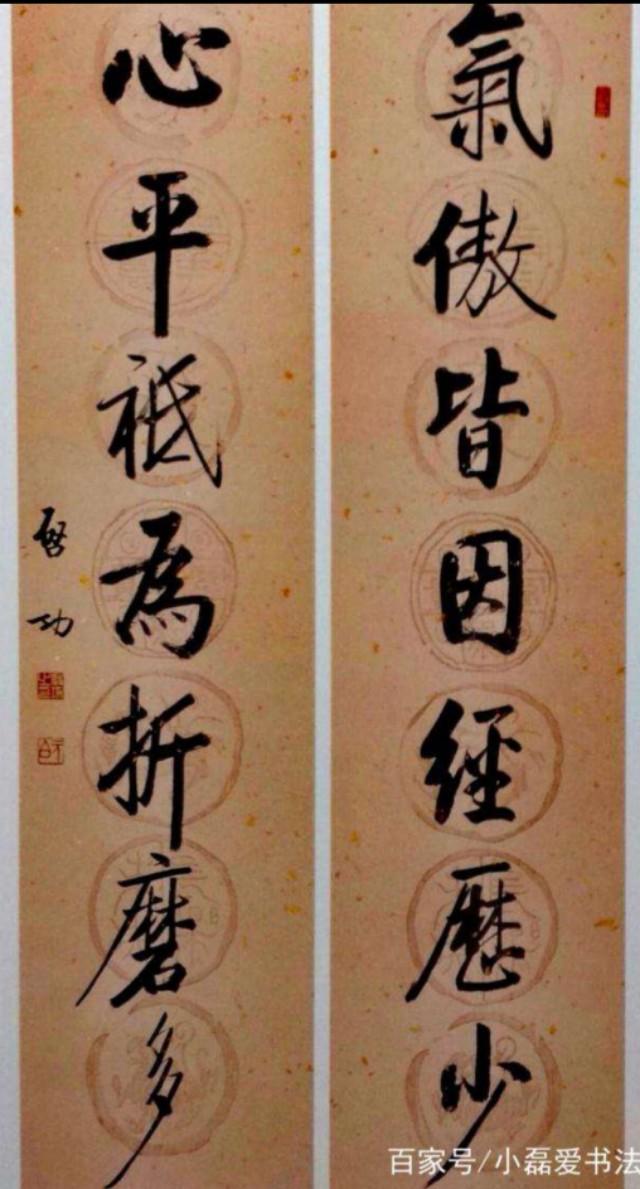 氣傲皆因經歷少
心平祗為折磨多
啓功
百家号/小磊爱书法